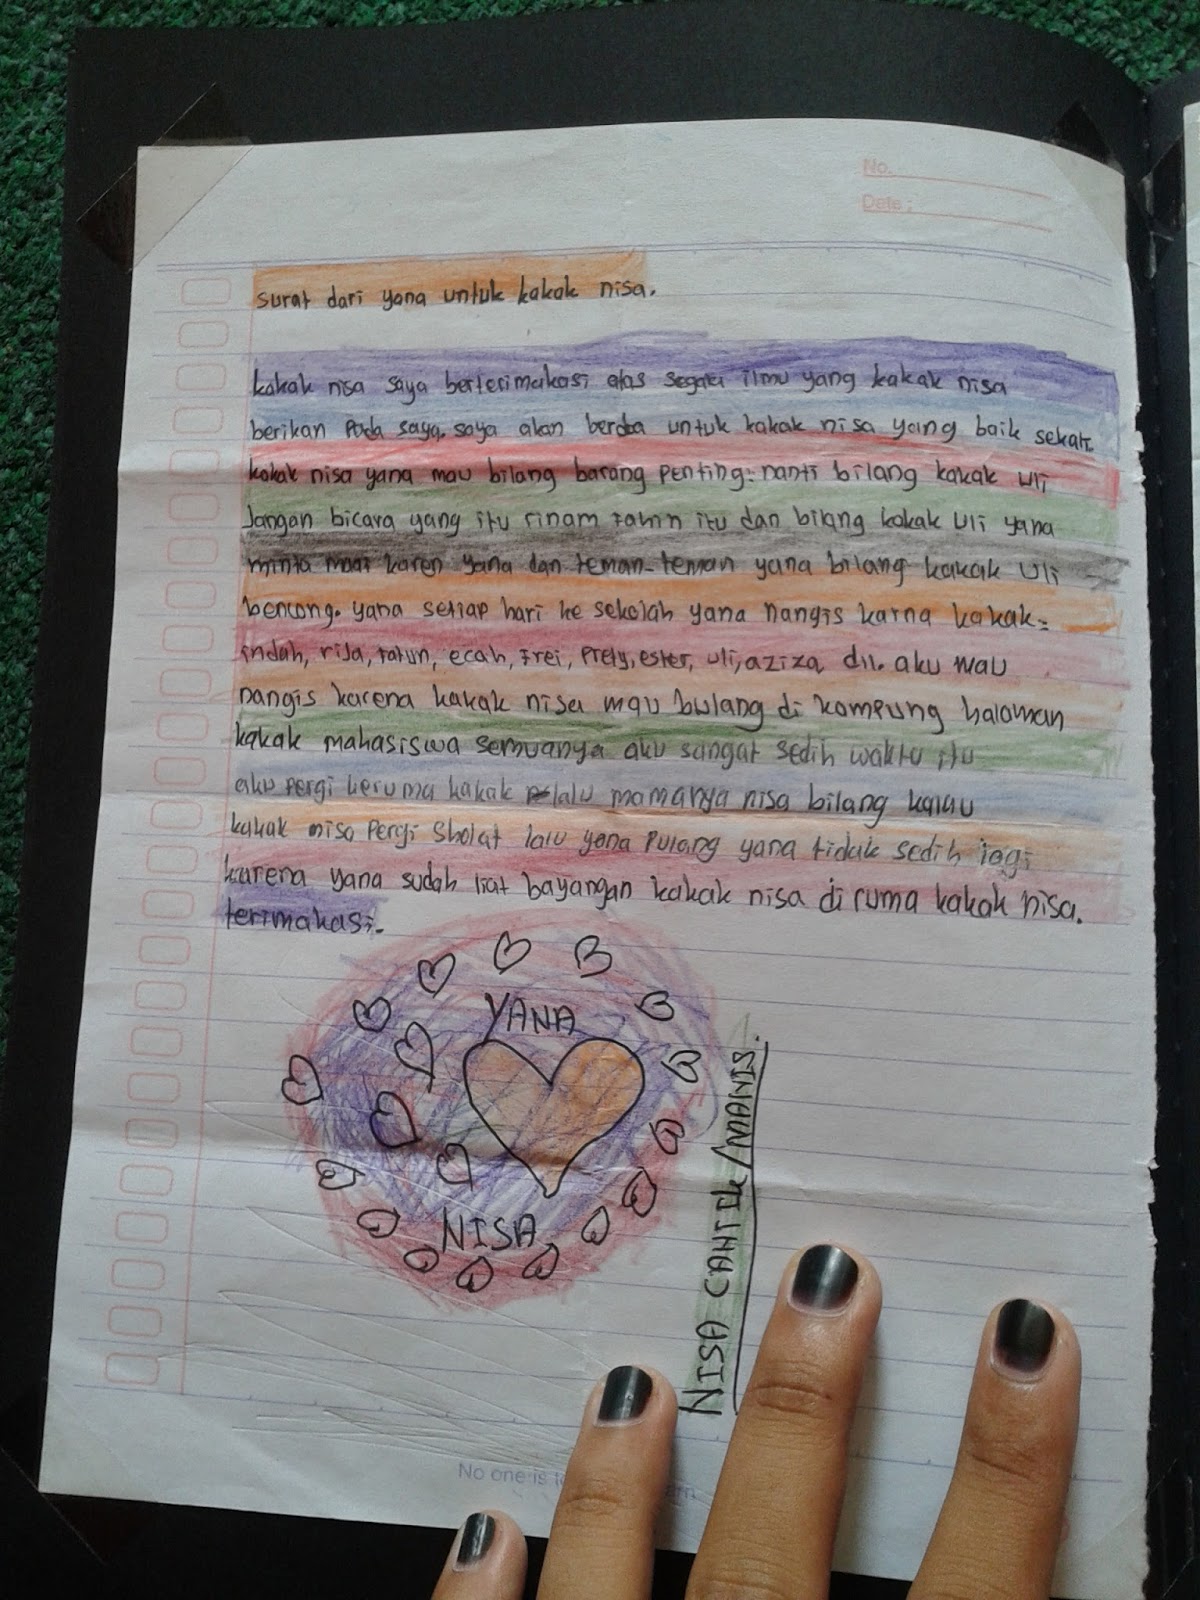 No.
Date :
surat dari yana untuk kakak nisa.
kakak nisa saya berterimakasi atas segala ilmu yang kakak nisa
berikan pada saya. saya akan berdoa untuk kakak nisa yang baik sekali.
kakak nisa yana mau bilang barang penting: nanti bilang kakak uli
Jangan bicara yang itu itu dan bilang kakak uli yana
minta maaf karen yana dan teman-teman yana bilang kakak uli
bencong. yana setiap hari ke sekolah yana nangis karna kakak=
indah, rija, ratun, ecah, frei, prely, ester, uli, aziza dll. aku mau
nangis karena kakak nisa mau bulang di kampung halaman
kakak mahasiswa semuanya aku sangat sedih waktu itu
aku pergi keruma kakak lalu mamanya nisa bilang kalau
kakak nisa pergi sholat lalu yana pulang yana tidak sedih lagi
karena yana sudah liat bayangan kakak nisa di ruma kakak nisa.
terimakasi.
YANA
NISA
NISA CANTIK/MANIS.
No one is